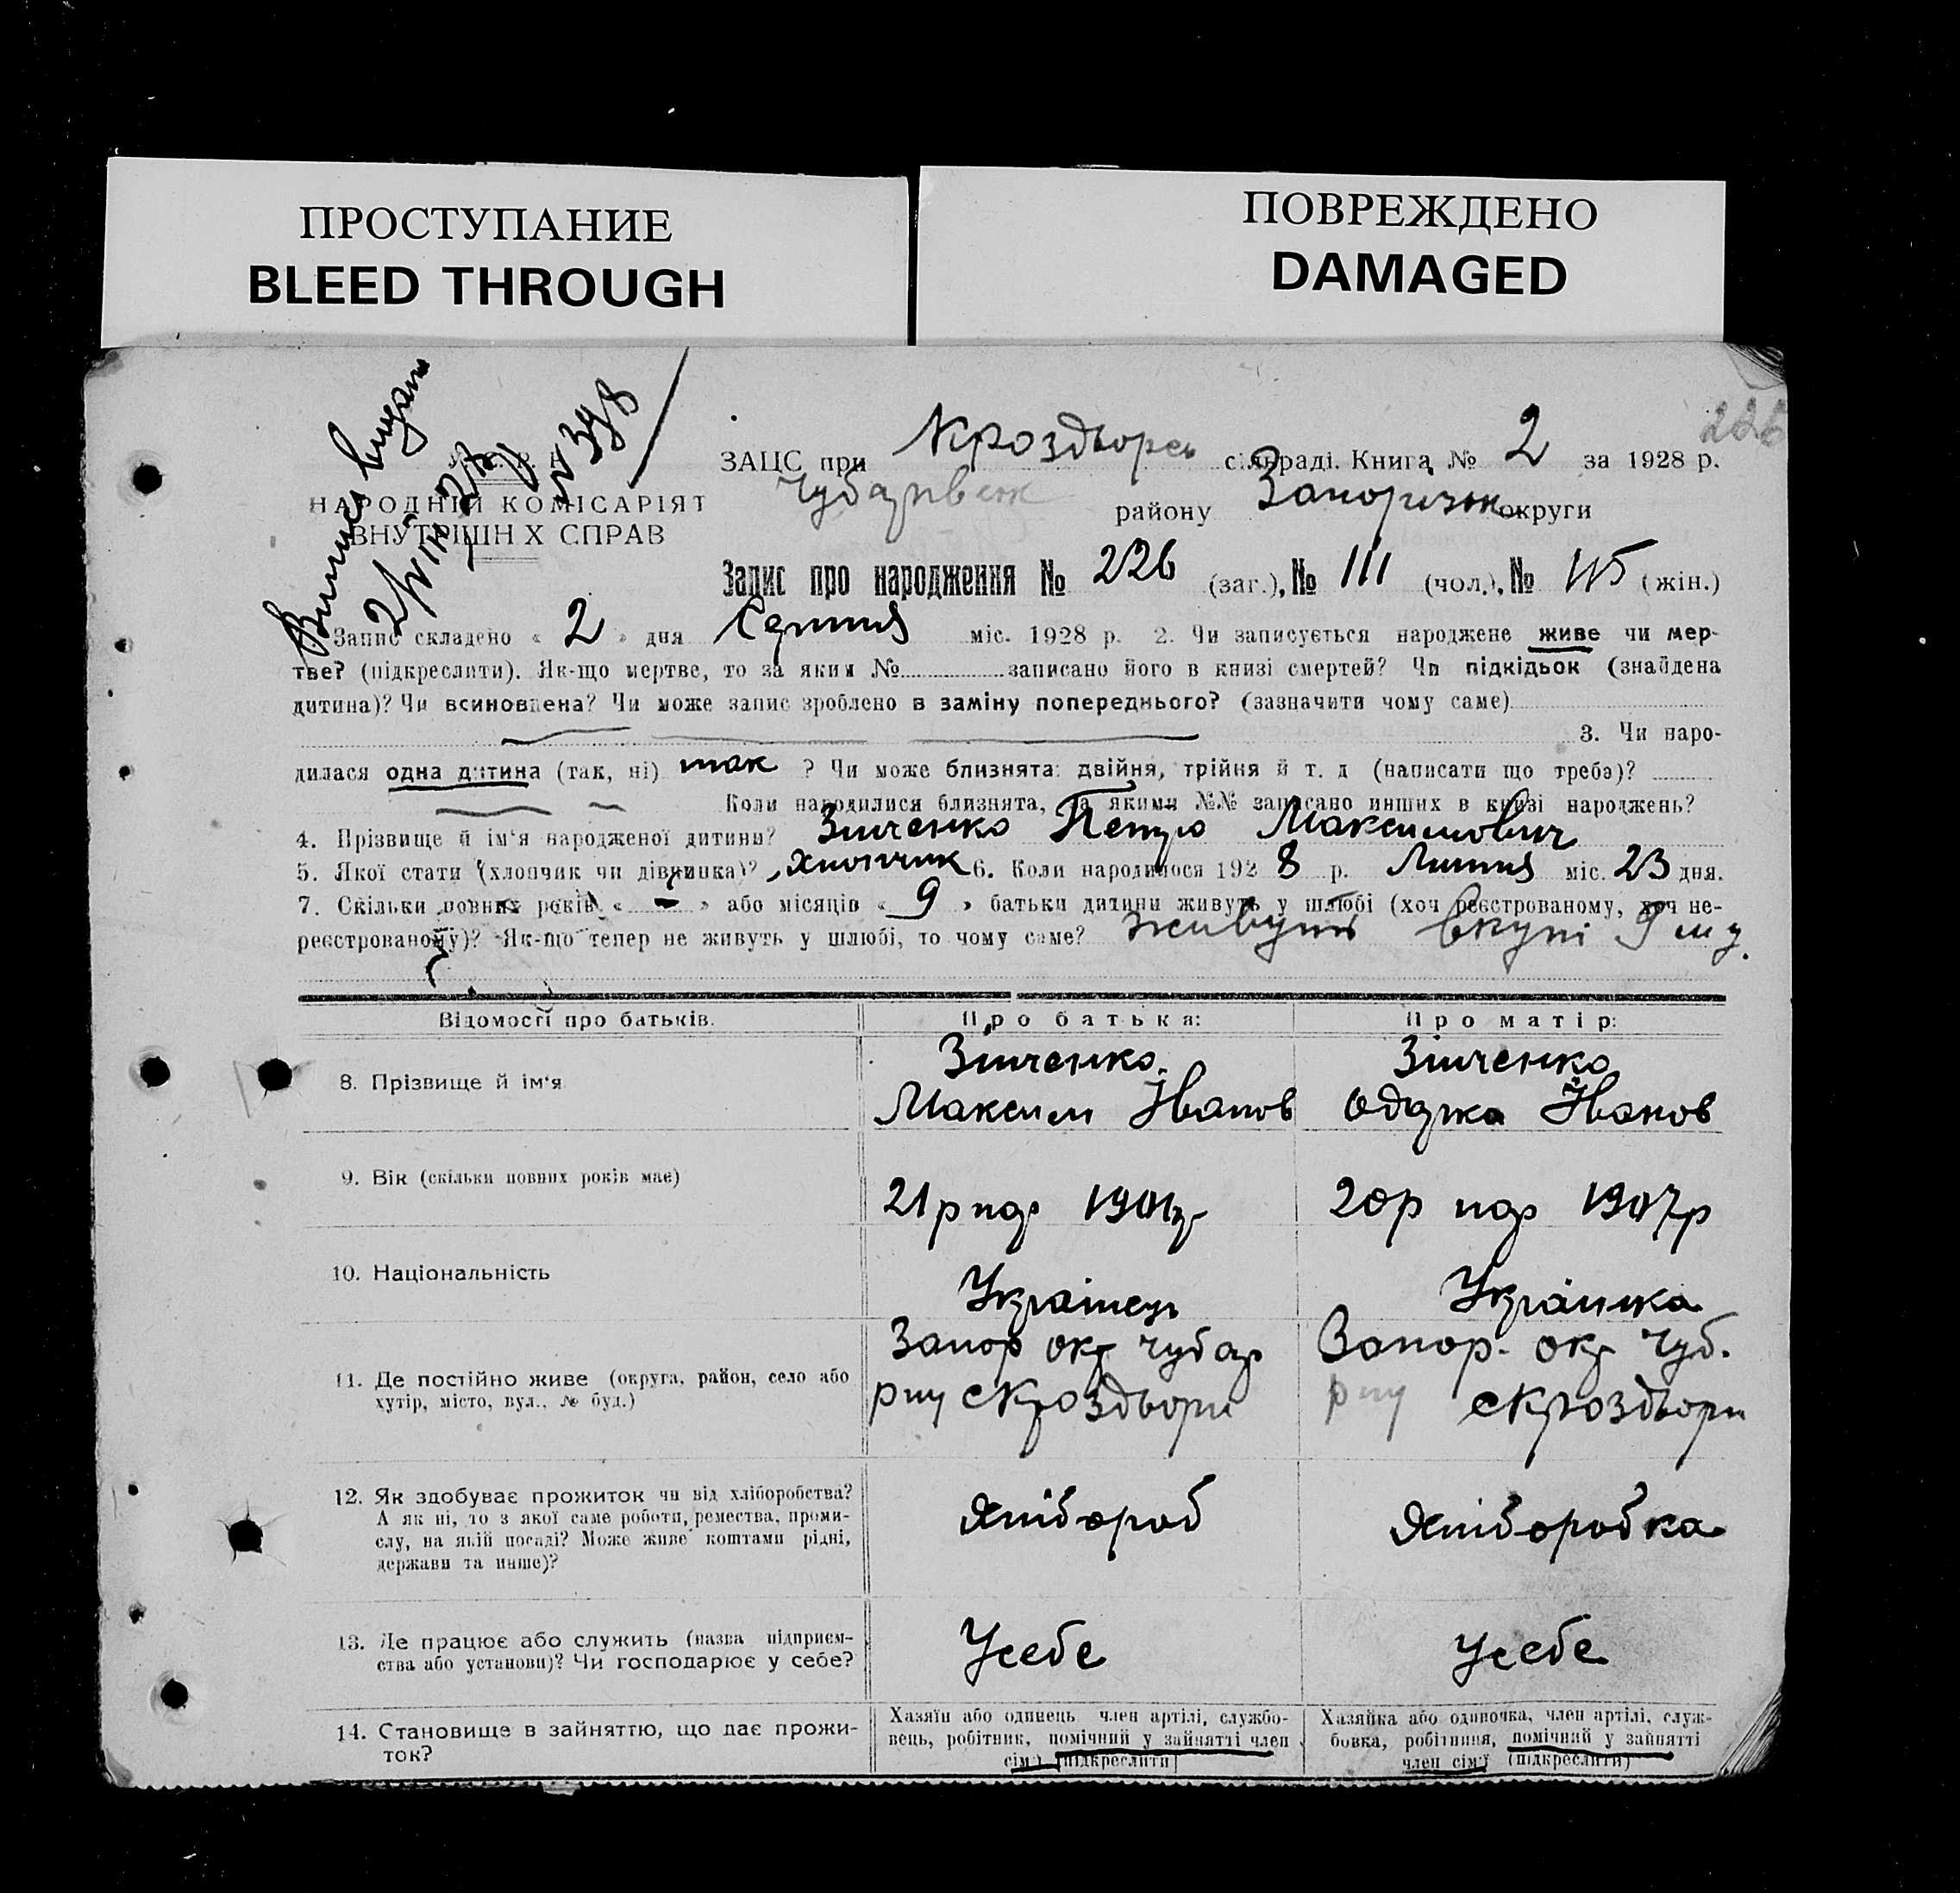 ПРОСТУПАНИЕ
BLEED THROUGH
ПОВРЕЖДЕНО
DAMAGED
226
Випись видано
№ 398
НАРОДНІЙ КОМІСАРІЯТ
ВНУТРІШН Х СПРАВ
ЗАЦС при Кроздворсь сільраді. Книга № 2 за 1928 р.
Чубарівськ району Запорізьк округи
Запис про народження № 226 (заг.), № 111 (чол.), № 115 (жін.)
Запис складено « 2 » дня Серпня міс. 1928 р. 2. Чи записується народжене живе чи мер-
тве? (підкреслити). Як-що мертве, то за яким № записано його в книзі смертей? Чи підкідьок (знайдена
дитина)? Чи всиновлена? Чи може запис зроблено в заміну попереднього? (зазначити чому саме)
3. Чи наро-
дилася одна дитина (так, ні) так ? Чи може близнята: двійня, трійня й т. д (написати що треба)?
Коли народилися близнята, за якими №№ записано инших в книзі народжень?
4. Прізвище й ім'я народженої дитини? Зінченко Петро Максимович
5. Якої стати (хлопчик чи дівчинка)? хлопчик 6. Коли народилося 192 8 р. Липня міс. 23 дня.
7. Скільки повних років « - » або місяців « 9 » батьки дитини живуть у шлюбі (хоч реєстрованому, хоч не-
реєстрованому)? Як-що тепер не живуть у шлюбі, то чому саме? живуть вкупі 9 м.
Відомості про батьків.
Про батька:
Про матір:
8. Прізвище й ім'я
Зінченко
Максим Іванов
Зінченко
Одарка Іванов
9. Вік (скільки повних років має)
21р нар
20р нар 1907р
10. Національність
Українець
Українка
11. Де постійно живе (округа, район, село або
хутір, місто, вул., № буд.)
Запор окр Чубар
рну с Кроздвори
Запор. окр Чуб.
рну с Кроздвори
12. Як здобуває прожиток чи від хліборобства?
А як ні, то з якої саме роботи, ремества, проми-
слу, на якій посаді? Може живе коштами рідні,
держави та инше)?
Хлібороб
Хліборобка
13. Де працює або служить (назва підприєм-
ства або установи)? Чи господарює у себе?
Усебе
Усебе
14. Становище в зайняттю, що дає прожи-
ток?
Хазяїн або одинець член артілі, службо-
вець, робітник, помічний у зайнятті член
сім'ї (підкреслити)
Хазяйка або одиночка, член артілі, служ-
бовка, робітниця, помічний у зайнятті
член сім'ї (підкреслити)